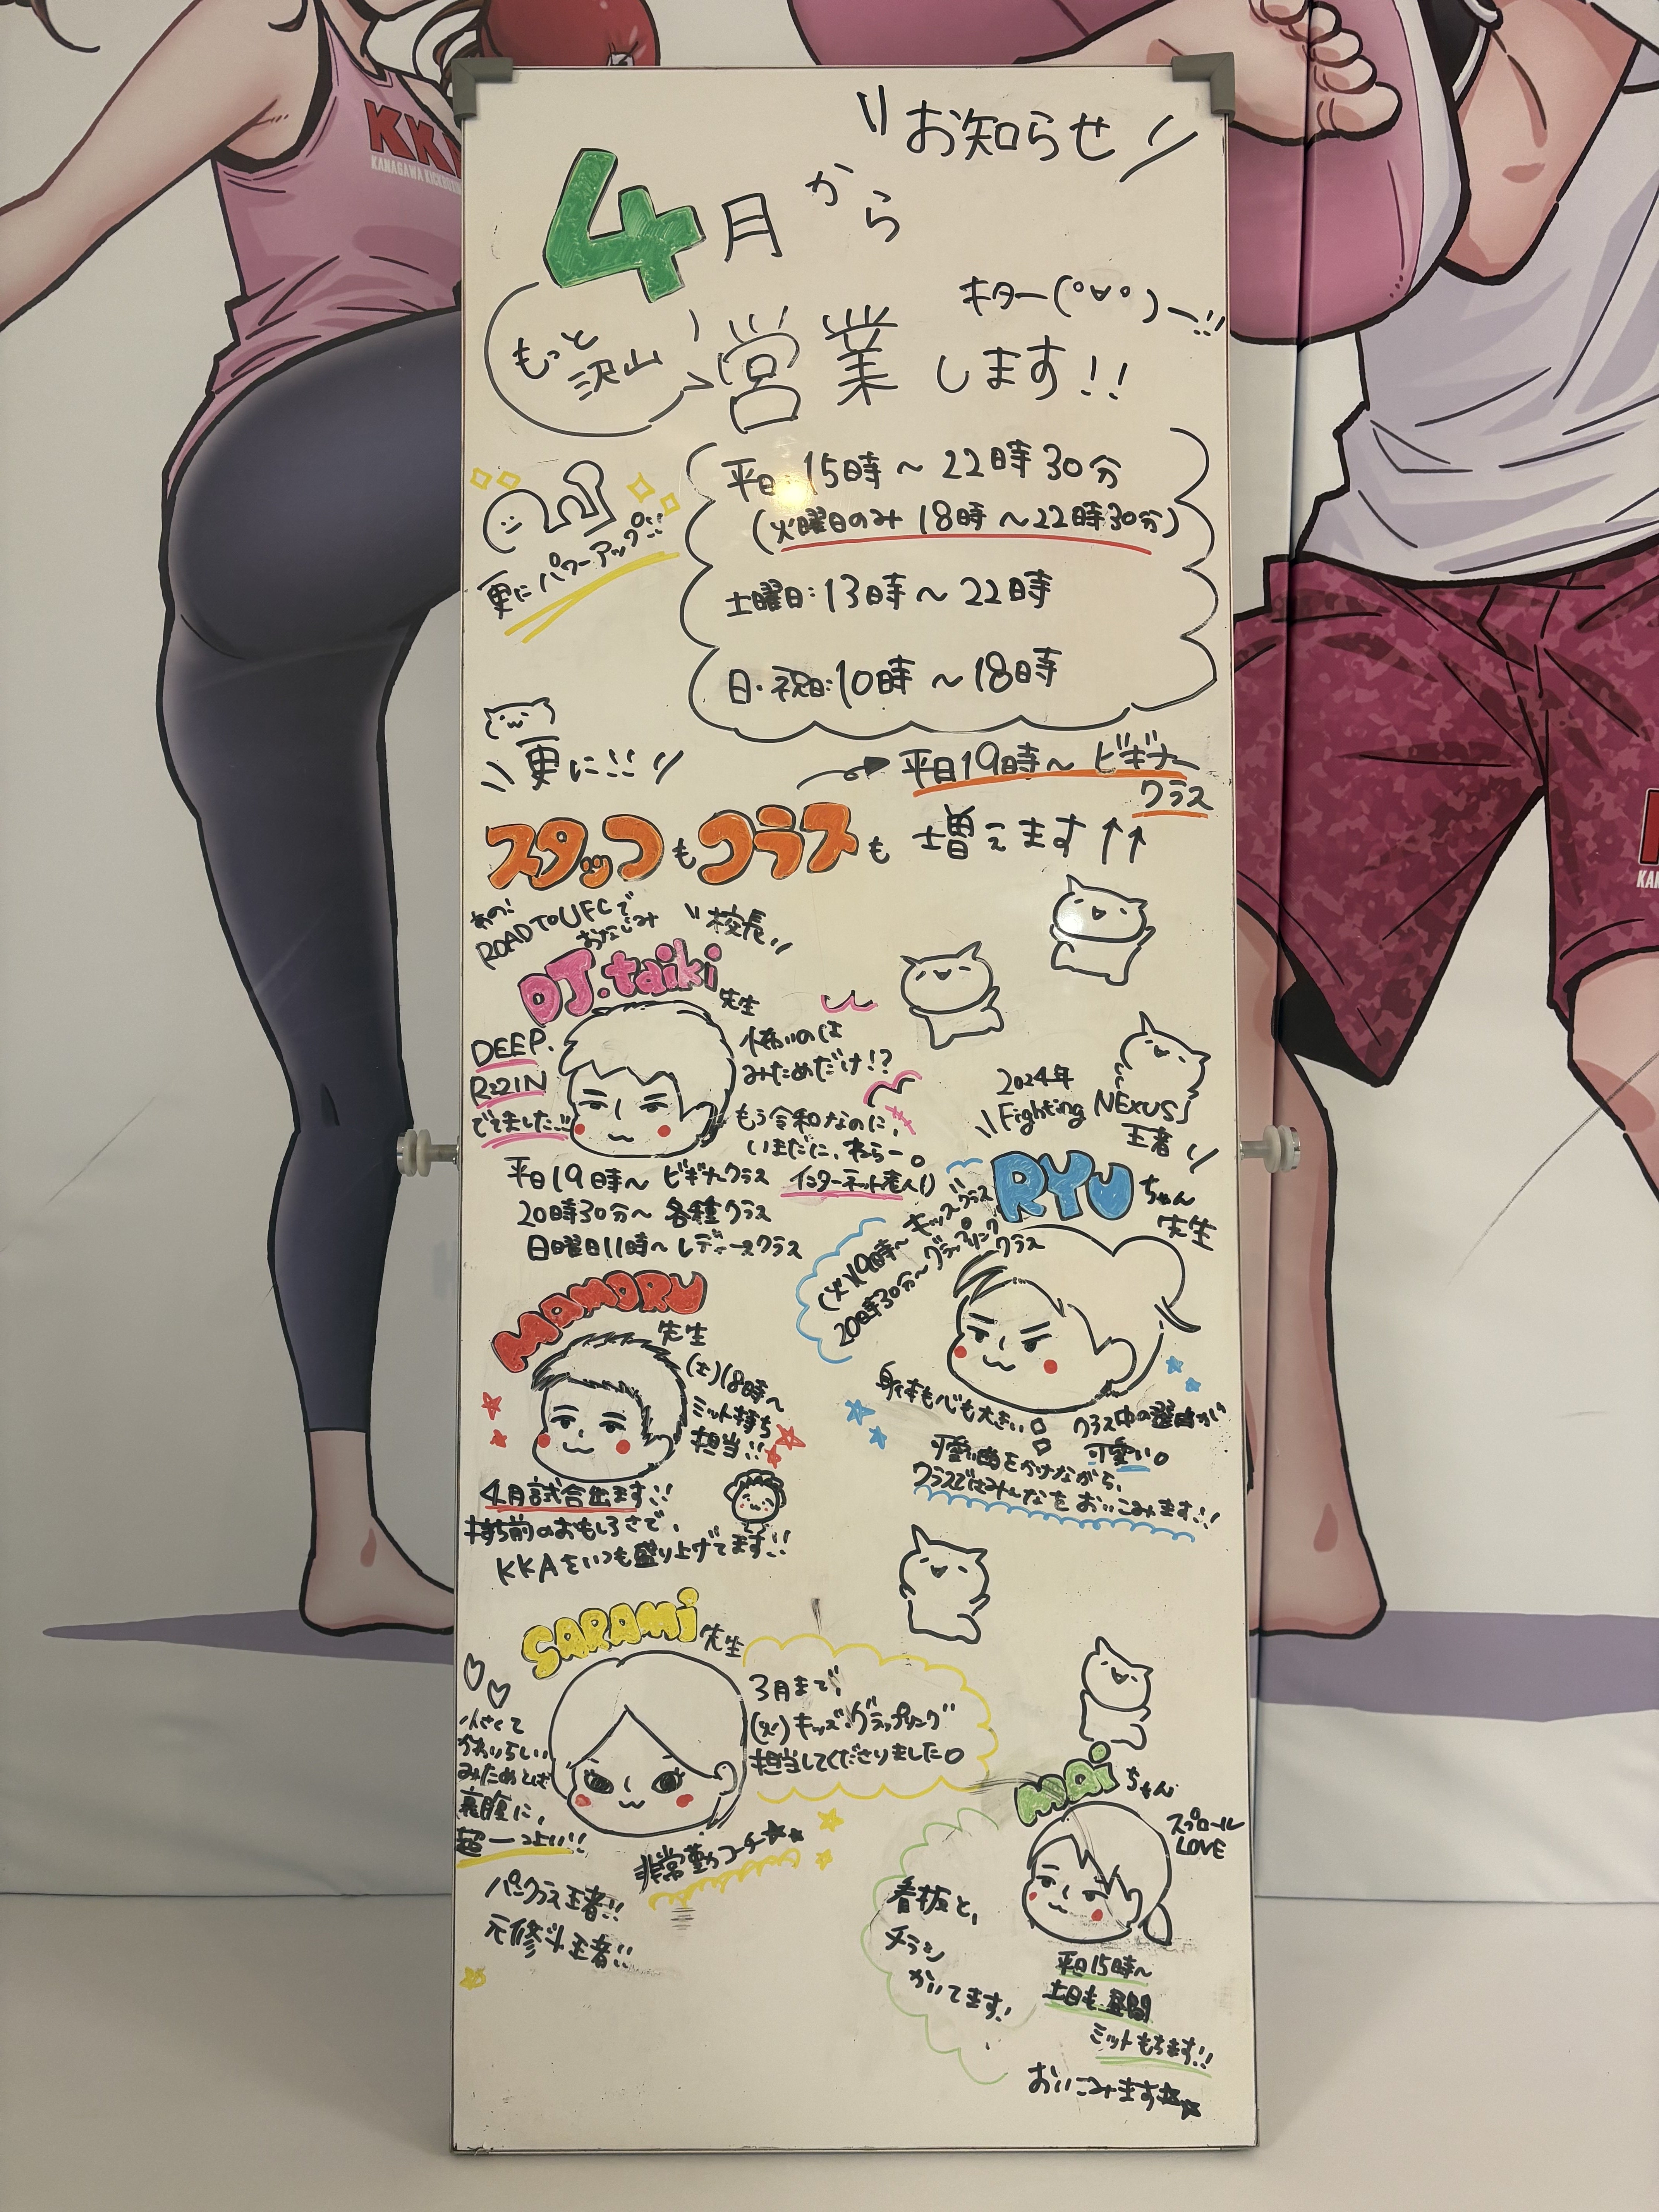 KKA
KANAGAWA KICKBOXING
お知らせ
4月から
キター(°∀°)ー!!
もっと
沢山
営業します!!
平日:15時〜22時30分
(火曜日のみ18時〜22時30分)
土曜日:13時〜22時
日・祝日:10時〜18時
更にパワーアップ!!
更に!!
平日19時〜ビギナー
クラス
スタッフもクラスも増えます↑↑
あの!
ROAD TO UFCで
おなじみ
校長
DJ.taiki先生
DEEP.
RIZIN
でてました!!
怖いのは
みためだけ!?
もう令和なのに、
いまだに、わらー。
インターネット老人!)
平日19時〜ビギナークラス
20時30分〜各種クラス
日曜日11時〜レディースクラス
2024年
Fighting NEXUS
王者
RYUちゃん
先生
(火)19時〜キッズクラス
20時30分〜グラップリングクラス
身体も心も大きい。
クラス中の選曲が
可愛い。
可愛い曲をかけながら、
クラスではみんなをおいこみます!!
MAMORU
先生
(土)18時〜
ミット持ち
担当!!
4月試合出ます!!
持ち前のおもしろさで、
KKAをいつも盛り上げてます!!
SARAMi先生
3月まで、
(火)キッズ・グラップリング
担当してくださりました。
小さくて
かわいらしい
みためとは
裏腹に、
超ーつよい!!
非常勤コーチ
パンクラス王者!!
元修斗王者!!
maiちゃん
スプロール
LOVE
看板と、
チラシ
かいてます!
平日15時〜
土日も昼間
ミットもちます!!
おいこみます